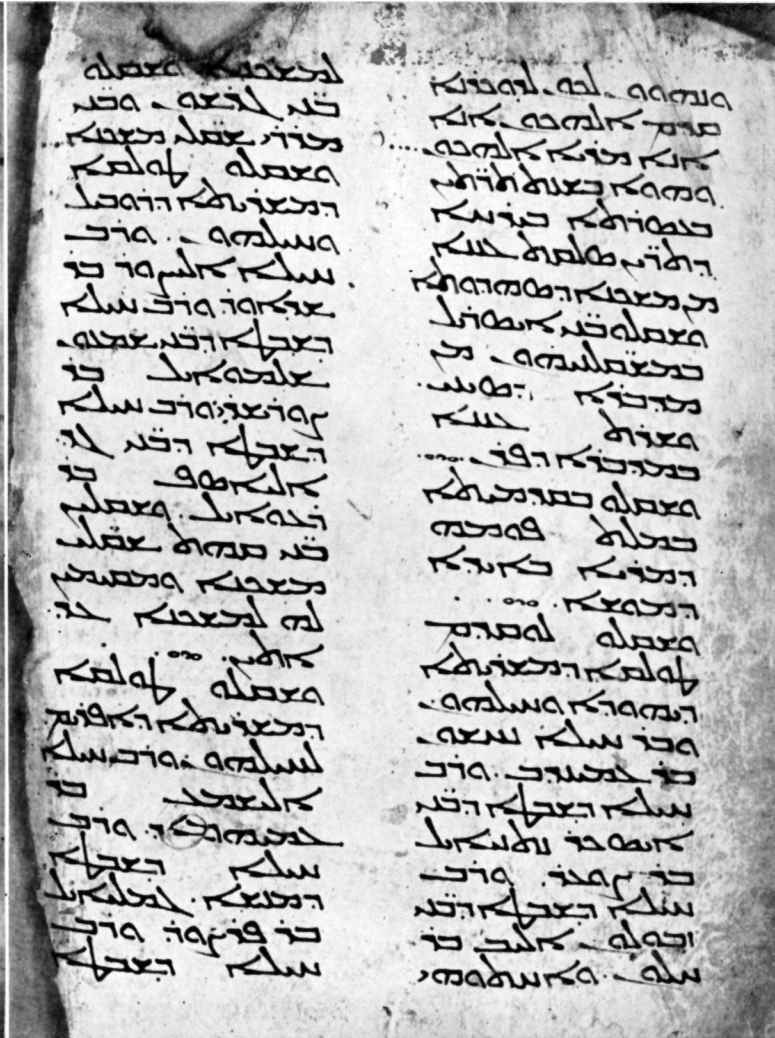 ܘܢܗܘܘܢ ܠܟܘܢ ܠܕܘܟܪܢܐ
ܩܕܡ ܐܠܗܟܘܢ ܐܢܐ
ܐܢܐ ܡܪܝܐ ܐܠܗܟܘܢ
ܘܗܘܐ ܒܫܢܬ ܬܪ̈ܬܝܢ
ܒܥܣܪܬܐ ܒܝܪܚܐ
ܕܬܪ̈ܝܢ ܣܠܩܬ ܥܢܢܐ
ܡܢ ܡܫܟܢܐ ܕܣܗܕܘܬܐ
ܘܫܩܠܘ ܒܢ̈ܝ ܐܝܣܪܝܠ
ܒܡܫܩ̈ܠܝܗܘܢ ܡܢ
ܡܕܒܪܐ ܕܣܝܢܝ
ܘܫܪܬ ܥܢܢܐ
ܒܡܕܒܪܐ ܕܦܪܢ
ܘܫܩܠܘ ܒܩܕܡܝܬܐ
ܒܡܠܬ ܦܘܡܗ
ܕܡܪܝܐ ܒܐܝܕܐ
ܕܡܘܫܐ
ܘܫܩܠܘ ܠܘܩܕܡ
ܛܘܠܩܐ ܕܡܫܪܝܬܐ
ܕܝܗܘܕܐ ܘܚܝܠܗܘܢ
ܘܒܪ ܚܝܠܐ ܢܚܫܘܢ
ܒܪ ܥܡܝܢܕܒ ܘܪܒ
ܚܝܠܐ ܕܫܒܛܐ ܕܒܢ̈ܝ
ܐܝܣܟܪ ܢܬܢܐܝܠ
ܒܪ ܨܘܥܪ ܘܪܒ
ܚܝܠܐ ܕܫܒܛܐ ܕܒܢ̈ܝ
ܙܒܘܠܘܢ ܐܠܝܒ ܒܪ
ܚܠܘܢ ܘܐܚܬܘܗܝ
ܠܡܫܟܢܐ ܘܫܩܠܘ
ܒܢ̈ܝ ܓܪܫܘܢ ܘܒܢ̈ܝ
ܡܪܪܝ ܫܩ̈ܠܝ ܡܫܟܢܐ
ܘܫܩܠܘ ܛܘܠܩܐ
ܕܡܫܪܝܬܐ ܕܪܘܒܝܠ
ܘܚܝܠܗܘܢ ܘܪܒ
ܚܝܠܐ ܐܠܝܨܘܪ ܒܪ
ܫܕܐܘܪ ܘܪܒ ܚܝܠܐ
ܕܫܒܛܐ ܕܒܢ̈ܝ ܫܡܥܘܢ
ܫܠܡܘܐܝܠ ܒܪ
ܨܘܪܝܫܕܝ ܘܪܒ ܚܝܠܐ
ܕܫܒܛܐ ܕܒܢ̈ܝ ܓܕ
ܐܠܝܣܦ ܒܪ
ܪܥܘܐܝܠ ܘܫܩܠܝܢ
ܒܢ̈ܝ ܩܗܬ ܫܩ̈ܠܝ
ܡܫܟܢܐ ܘܡܩܝܡܝܢ
ܠܗ ܠܡܫܟܢܐ ܥܕ
ܐܬܝܢ
ܘܫܩܠܘ ܛܘܠܩܐ
ܕܡܫܪܝܬܐ ܕܐܦܪܝܡ
ܠܚܝܠܗܘܢ ܘܪܒ ܚܝܠܐ
ܐܠܝܫܡܥ ܒܪ
ܥܡܝܗܘܕ ܘܪܒ
ܚܝܠܐ ܕܫܒܛܐ
ܕܡܢܫܐ ܓܡܠܝܐܝܠ
ܒܪ ܦܪܨܘܪ ܘܪܒ
ܚܝܠܐ ܕܫܒܛܐ